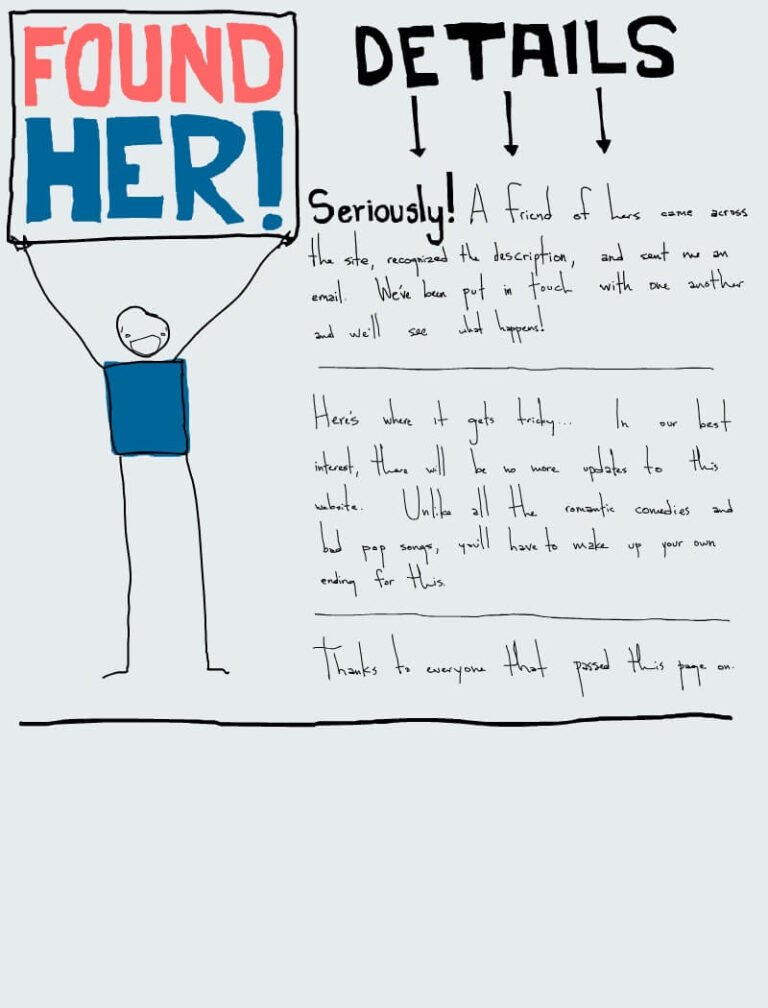 FOUND
HER!
DETAILS
Seriously! A friend of hers came across
the site, recognized the description, and sent me an
email. We've been put in touch with one another
and we'll see what happens!
Here's where it gets tricky... In our best
interest, there will be no more updates to this
website. Unlike all the romantic comedies and
bad pop songs, you'll have to make up your own
ending for this.
Thanks to everyone that passed this page on.